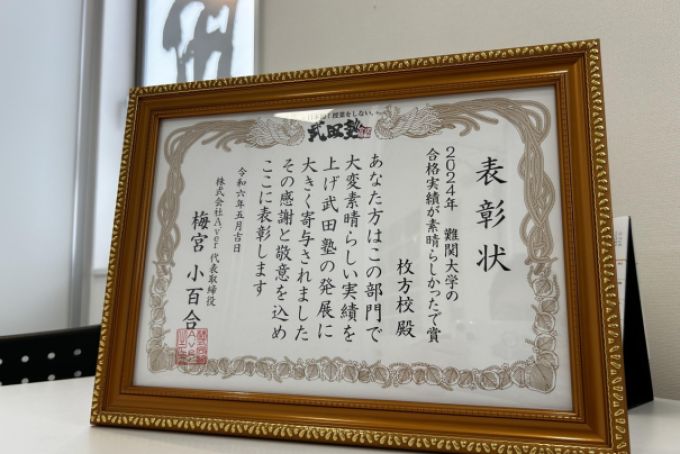 授業をしない。
武田塾
表彰状
2024年　難関大学の
合格実績が素晴らしかったで賞
枚方校 殿
あなた方はこの部門で
大変素晴らしい実績を
上げ武田塾の発展に
大きく寄与されました
その感謝と敬意を込め
ここに表彰します
令和六年五月吉日
株式会社A.ver 代表取締役
梅宮 小百合